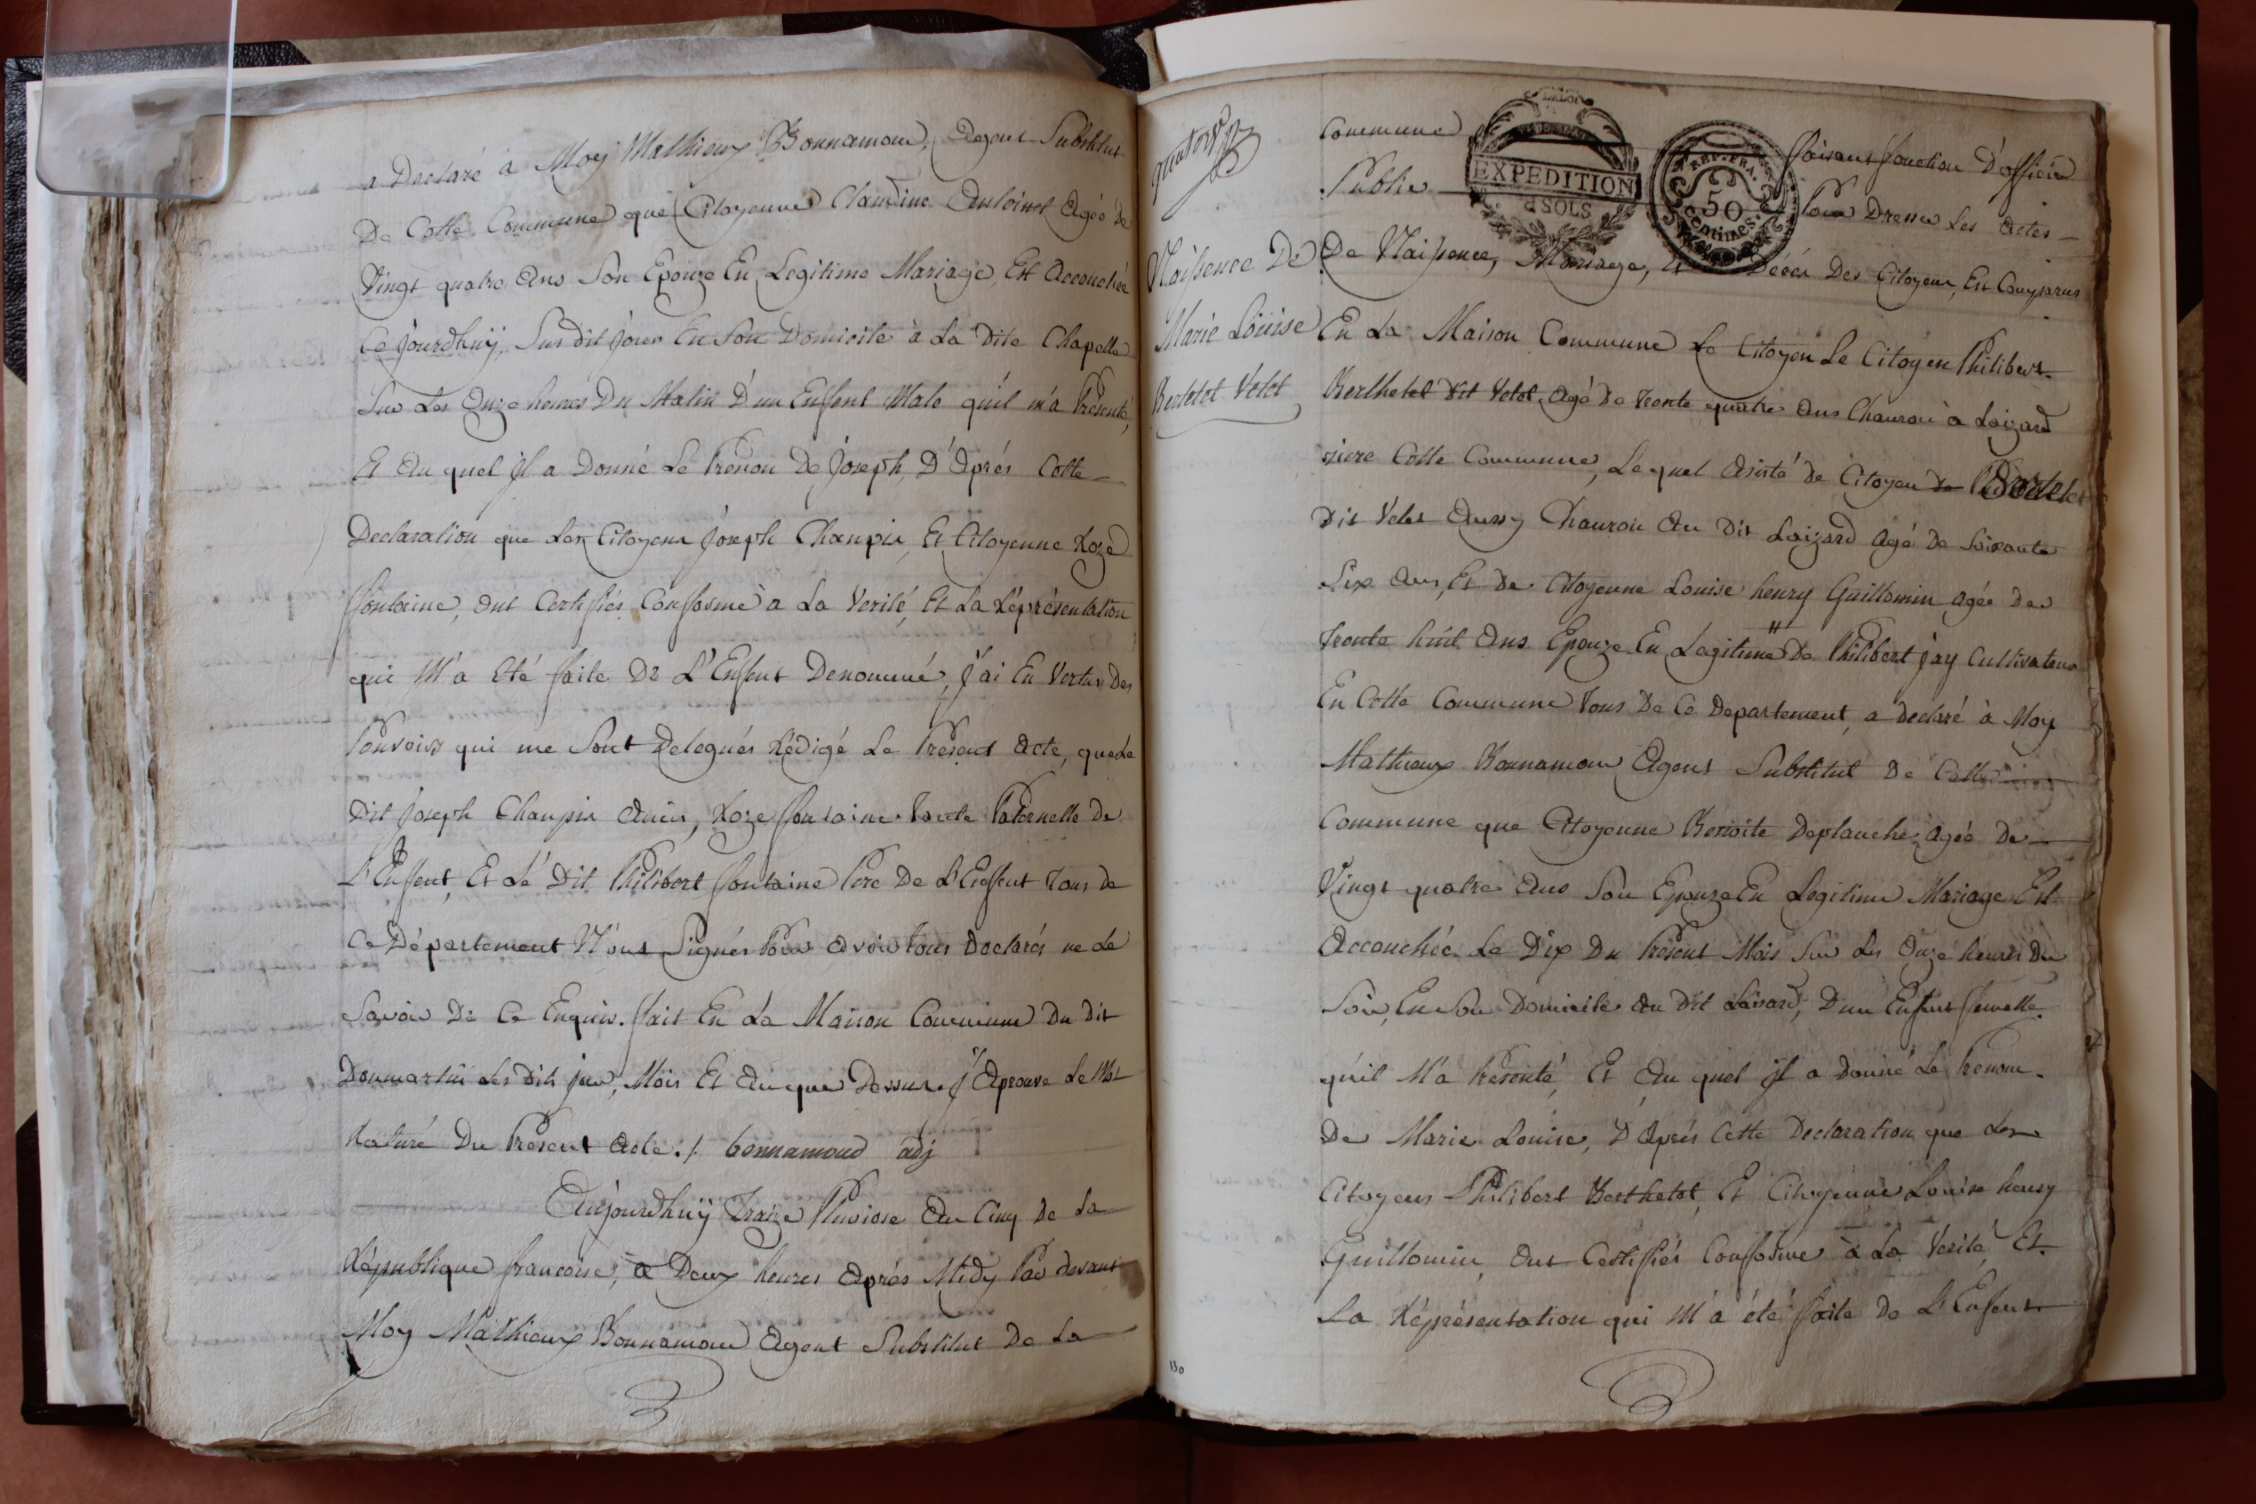 a Declaré à Moy Mathieux Bonnamour, Agent Substitut
De Cette Commune que Citoyenne Claudine Antoinet Agée de
Vingt quatre Ans Son Epouze En Legitime Mariage, Est Accouchée
Ce jourdhuÿ, Sus dit jour En Son Domicile à La Dite Chapelle
Sur Les Onze heures Du Matin D'un Enfent Male qu'il m'a Présenté,
Et Au quel jl a Donné Le Prenom De Joseph, D'Après Cette
Declaration que Les Citoyens Joseph Chanpin, Et Citoyenne Roze
fontaine, ont Certiffiés Conforme à La Verité, Et La Répresentation
qui M'a Eté faite De L'Enfent Denommé, J'ai En Vertus Des
Pouvoirs qui me Sont Delegués Rédigé Le Present Acte, que Le
Dit Joseph Chanpin Amis, Roze fontaine Tante Paternelle De
L'Enfent, Et Le Dit Philibert fontaine Pere De L'Enfent Tous De
Ce Département N'ont Signés Pour Avoir Tous Declarés ne Le
Savoir De Ce Enquis. fait En La Maison Commune Du Dit
Donmartin Les Dits jour, Mois Et An que Dessus. J'Aprouve Le Mot
Raturé Du Present Acte ./. bonnamoud adj
Aujourdhuÿ Traize Pluviose An Cinq De La
République francoise, à Deux heures Après Midy Par devant
Moy Mathieux Bonnamour Agent Substitut De La
quatorze
Naissence De
Marie Loüise
Bertelot Velot
Commune faisant fonction D'officier
EXPEDITION
SOLS
REP. FRA.
50
Centimes
Public Pour Dresser Les Actes
De Naissence, Mariage, Et Décés Des Citoyens, Est Comparus
En La Maison Commune Le Citoyen Le Citoyen Philibert
Berthelot Dit Velot, Agé De Trente quatre Ans Charron à Loizard
Cette Commune, Le quel Assisté de Citoyen
Dit Velot Aussy Charron Au Dit Loizard Agé De Soixante
Six Ans, Et De Citoyenne Louise henry Guillomin agée De
Trente huit Ans Epouze En Legitime De Philibert Jay Cultivateur
En Cette Commune Tous De Ce Departement, a Declaré à Moy
Mathieux Bonnamour Agent Substitut De Cette
Commune que Citoyenne Benoite Deplanche agée De
Vingt quatre Ans Son Epouze En Legitime Mariage Est
Accouchée Le Dix Du Present Mois Sur Les Onze heures Du
Soir, En Son Domicile Au Dit Loisard, D'un Enfent femelle
qu'il M'a Presenté, Et Au quel jl a Donné Le Prenom
De Marie Louise, D'Après Cette Declaration que Les
Citoyens Philibert Berthelot, Et Citoyenne Louise henry
Guillomin ont Certiffiés Conforme à La Verité, Et
La Réprésentation qui M'a été faite De L'Enfent
130